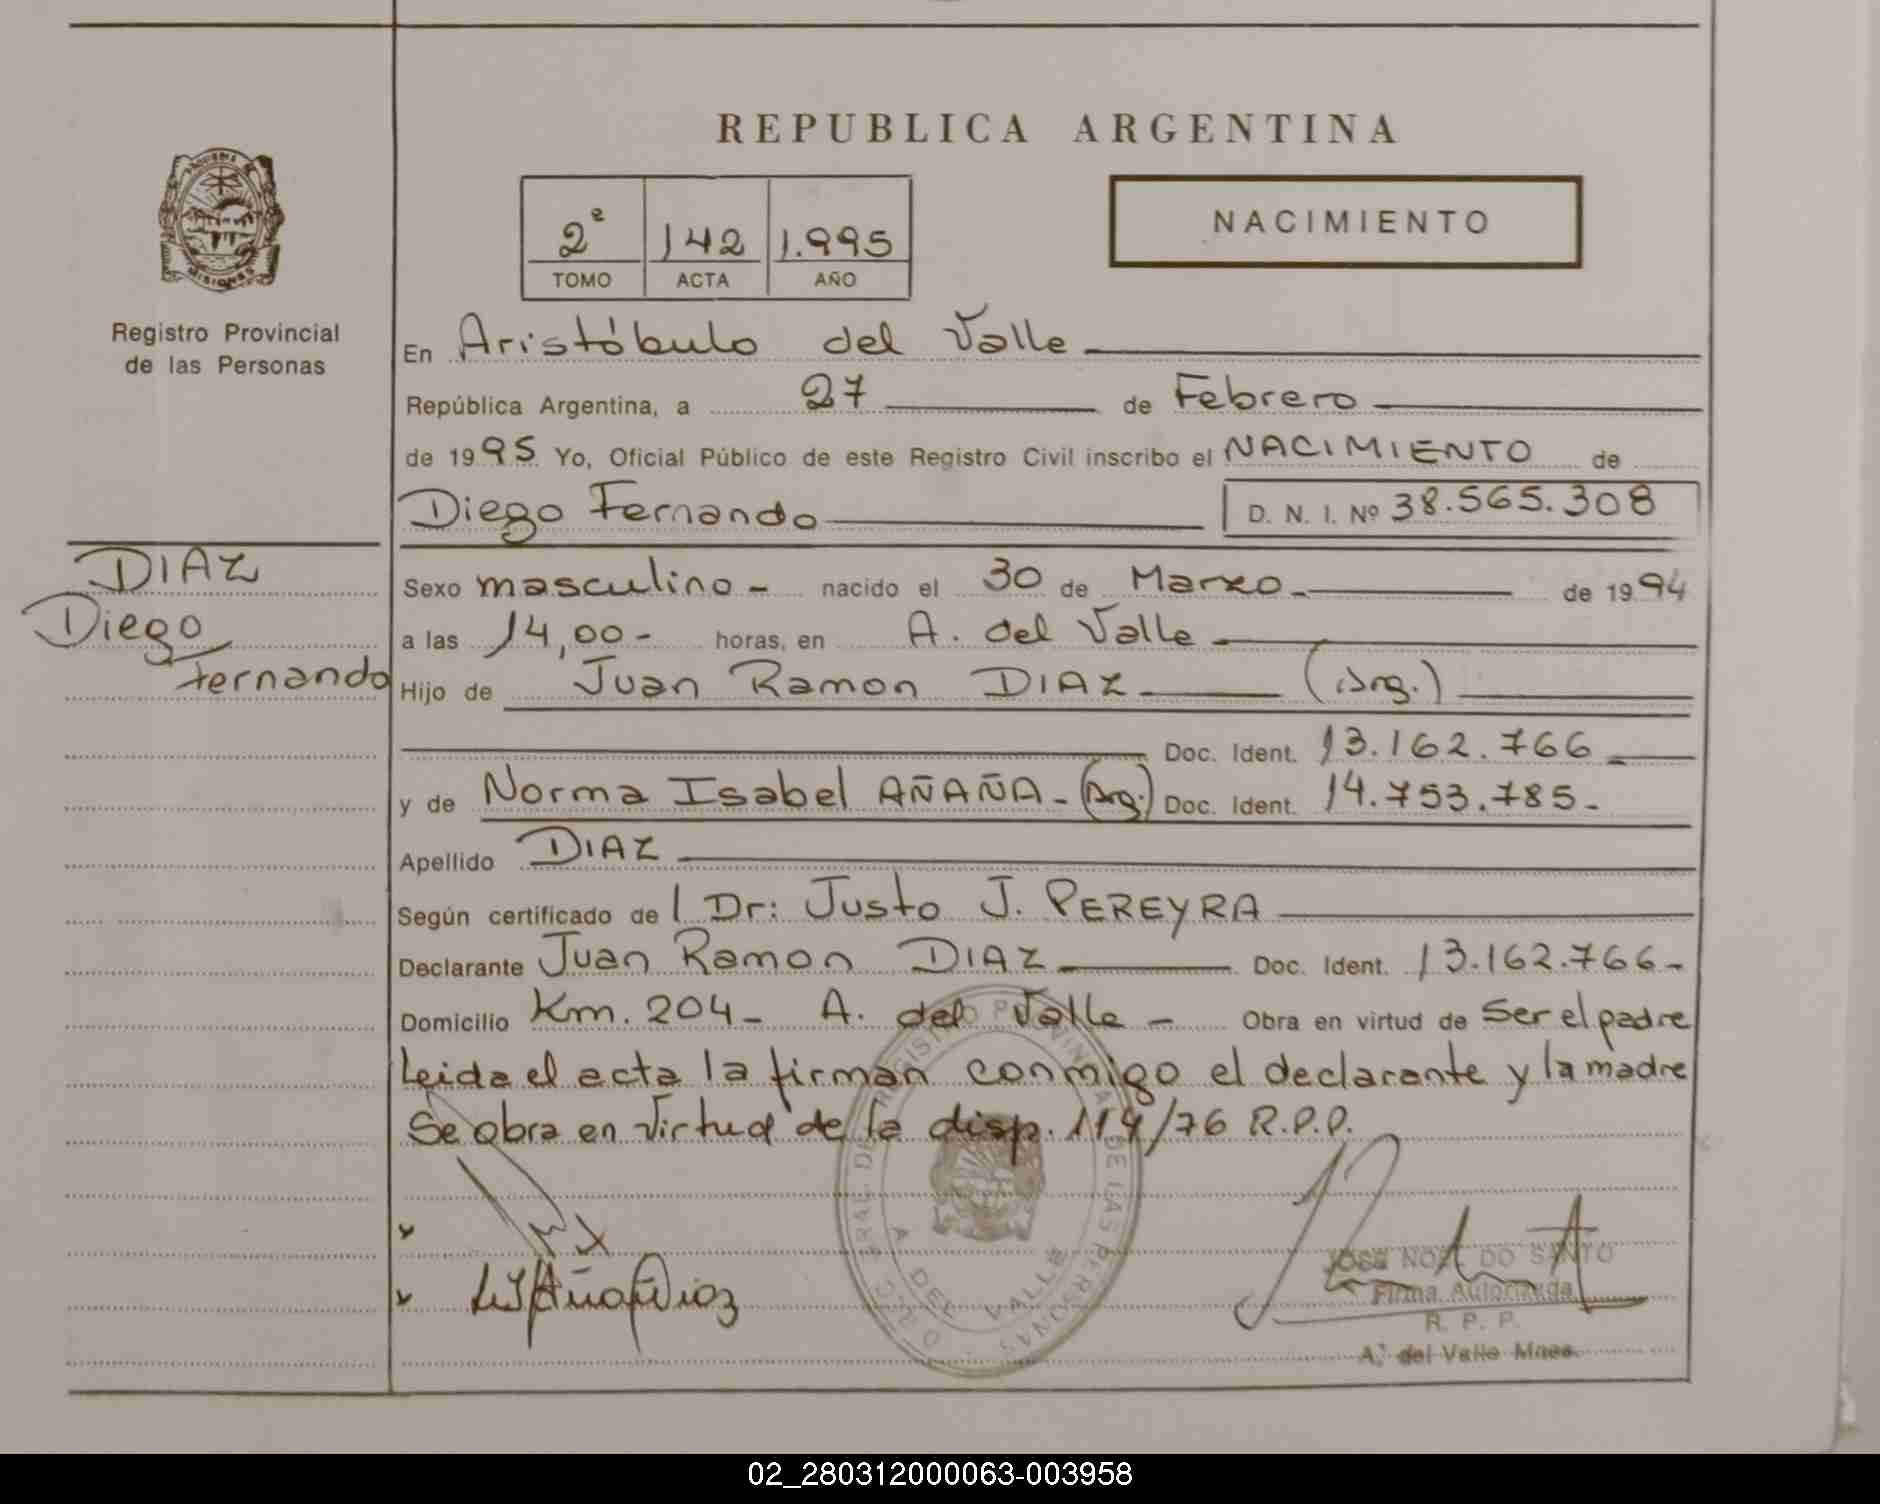 REPUBLICA ARGENTINA
MISIONES
Registro Provincial
de las Personas
2º 142 1.995
TOMO ACTA AÑO
NACIMIENTO
En Aristóbulo del Valle
República Argentina, a 27 de Febrero
de 1995 Yo, Oficial Público de este Registro Civil inscribo el NACIMIENTO de
Diego Fernando D. N. I. Nº 38.565.308
DIAZ
Diego
Fernando
Sexo masculino - nacido el 30 de Marzo - de 1994
a las 14,00 - horas, en A. del Valle
Hijo de Juan Ramon DIAZ (Arg.)
Doc. Ident. 13.162.766
y de Norma Isabel AÑAÑA - (Arg.) Doc. Ident. 14.753.785-
Apellido DIAZ
Según certificado de l Dr: Justo J. PEREYRA
Declarante Juan Ramon DIAZ Doc. Ident. 13.162.766-
Domicilio Km. 204 - A. del Valle - Obra en virtud de Ser el padre
Leida el acta la firman conmigo el declarante y la madre
Se obra en virtud de la disp. 114/76 R.P.P.
A DEL VALLE
JOSE NOEL DO SANTO
Firma Autorizada
R. P. P.
A. del Valle Mnes.
02_280312000063-003958